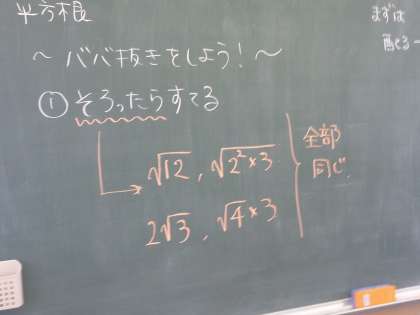 平方根
～ババ抜きをしよう！～
① そろったらすてる
√12 , √2²×3
2√3 , √4×3
全部
同じ.
まずは